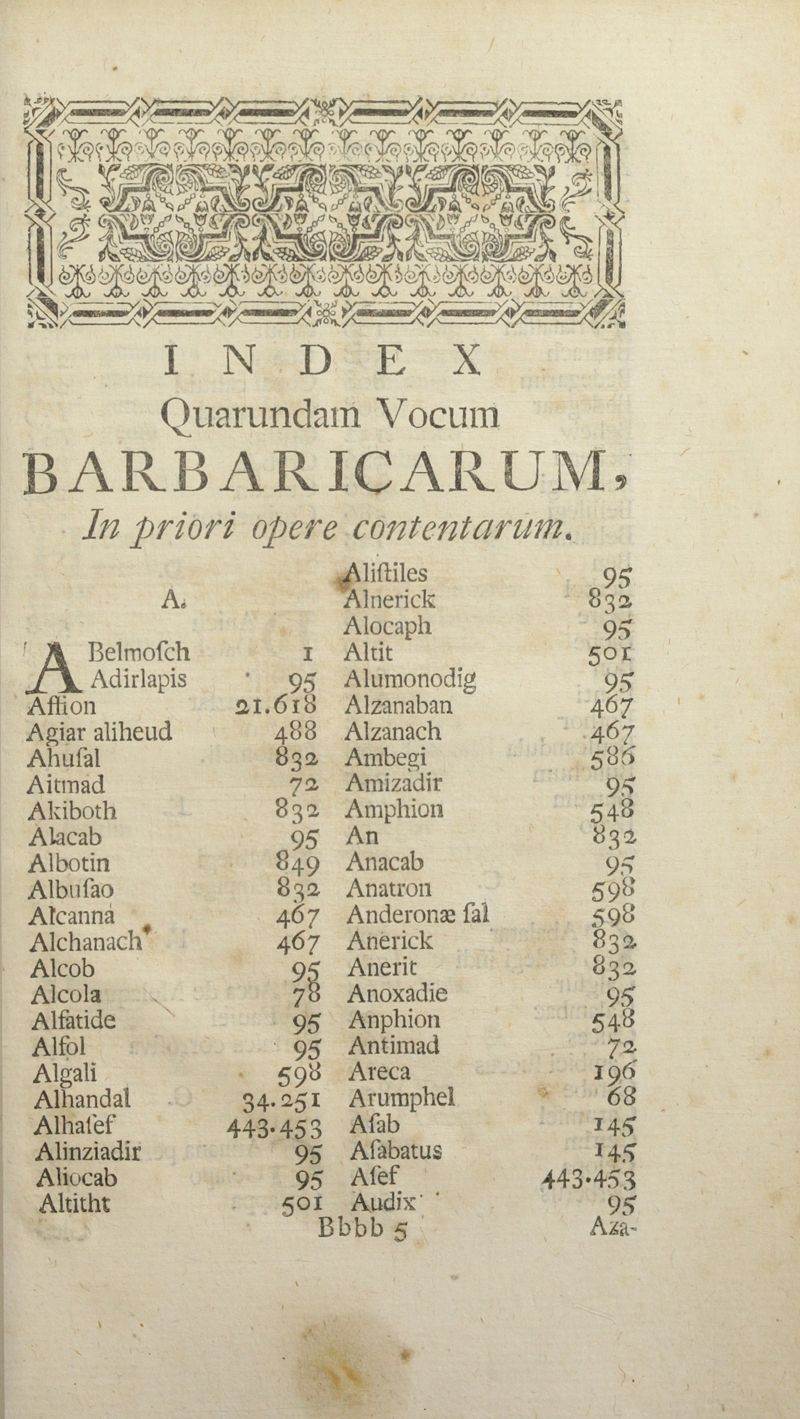 INDEX
Quarundam Vocum
BARBARICARUM,
In priori opere contentarum.
A.
ABelmoſch 1
Adirlapis 95
Affion 21.618
Agiar aliheud 488
Ahuſal 832
Aitmad 72
Akiboth 832
Alacab 95
Albotin 849
Albuſao 832
Alcanna 467
Alchanach 467
Alcob 95
Alcola 78
Alfatide 95
Alfol 95
Algali 598
Alhandal 34.251
Alhaſef 443.453
Alinziadir 95
Aliocab 95
Altitht 501
Aliſtiles 95
Alnerick 832
Alocaph 95
Altit 501
Alumonodig 95
Alzanaban 467
Alzanach 467
Ambegi 586
Amizadir 95
Amphion 548
An 832
Anacab 95
Anatron 598
Anderonæ ſal 598
Anerick 832
Anerit 832
Anoxadie 95
Anphion 548
Antimad 72
Areca 196
Arumphel 68
Aſab 145
Aſabatus 145
Aſef 443.453
Audix 95
Bbbb 5
Aza-